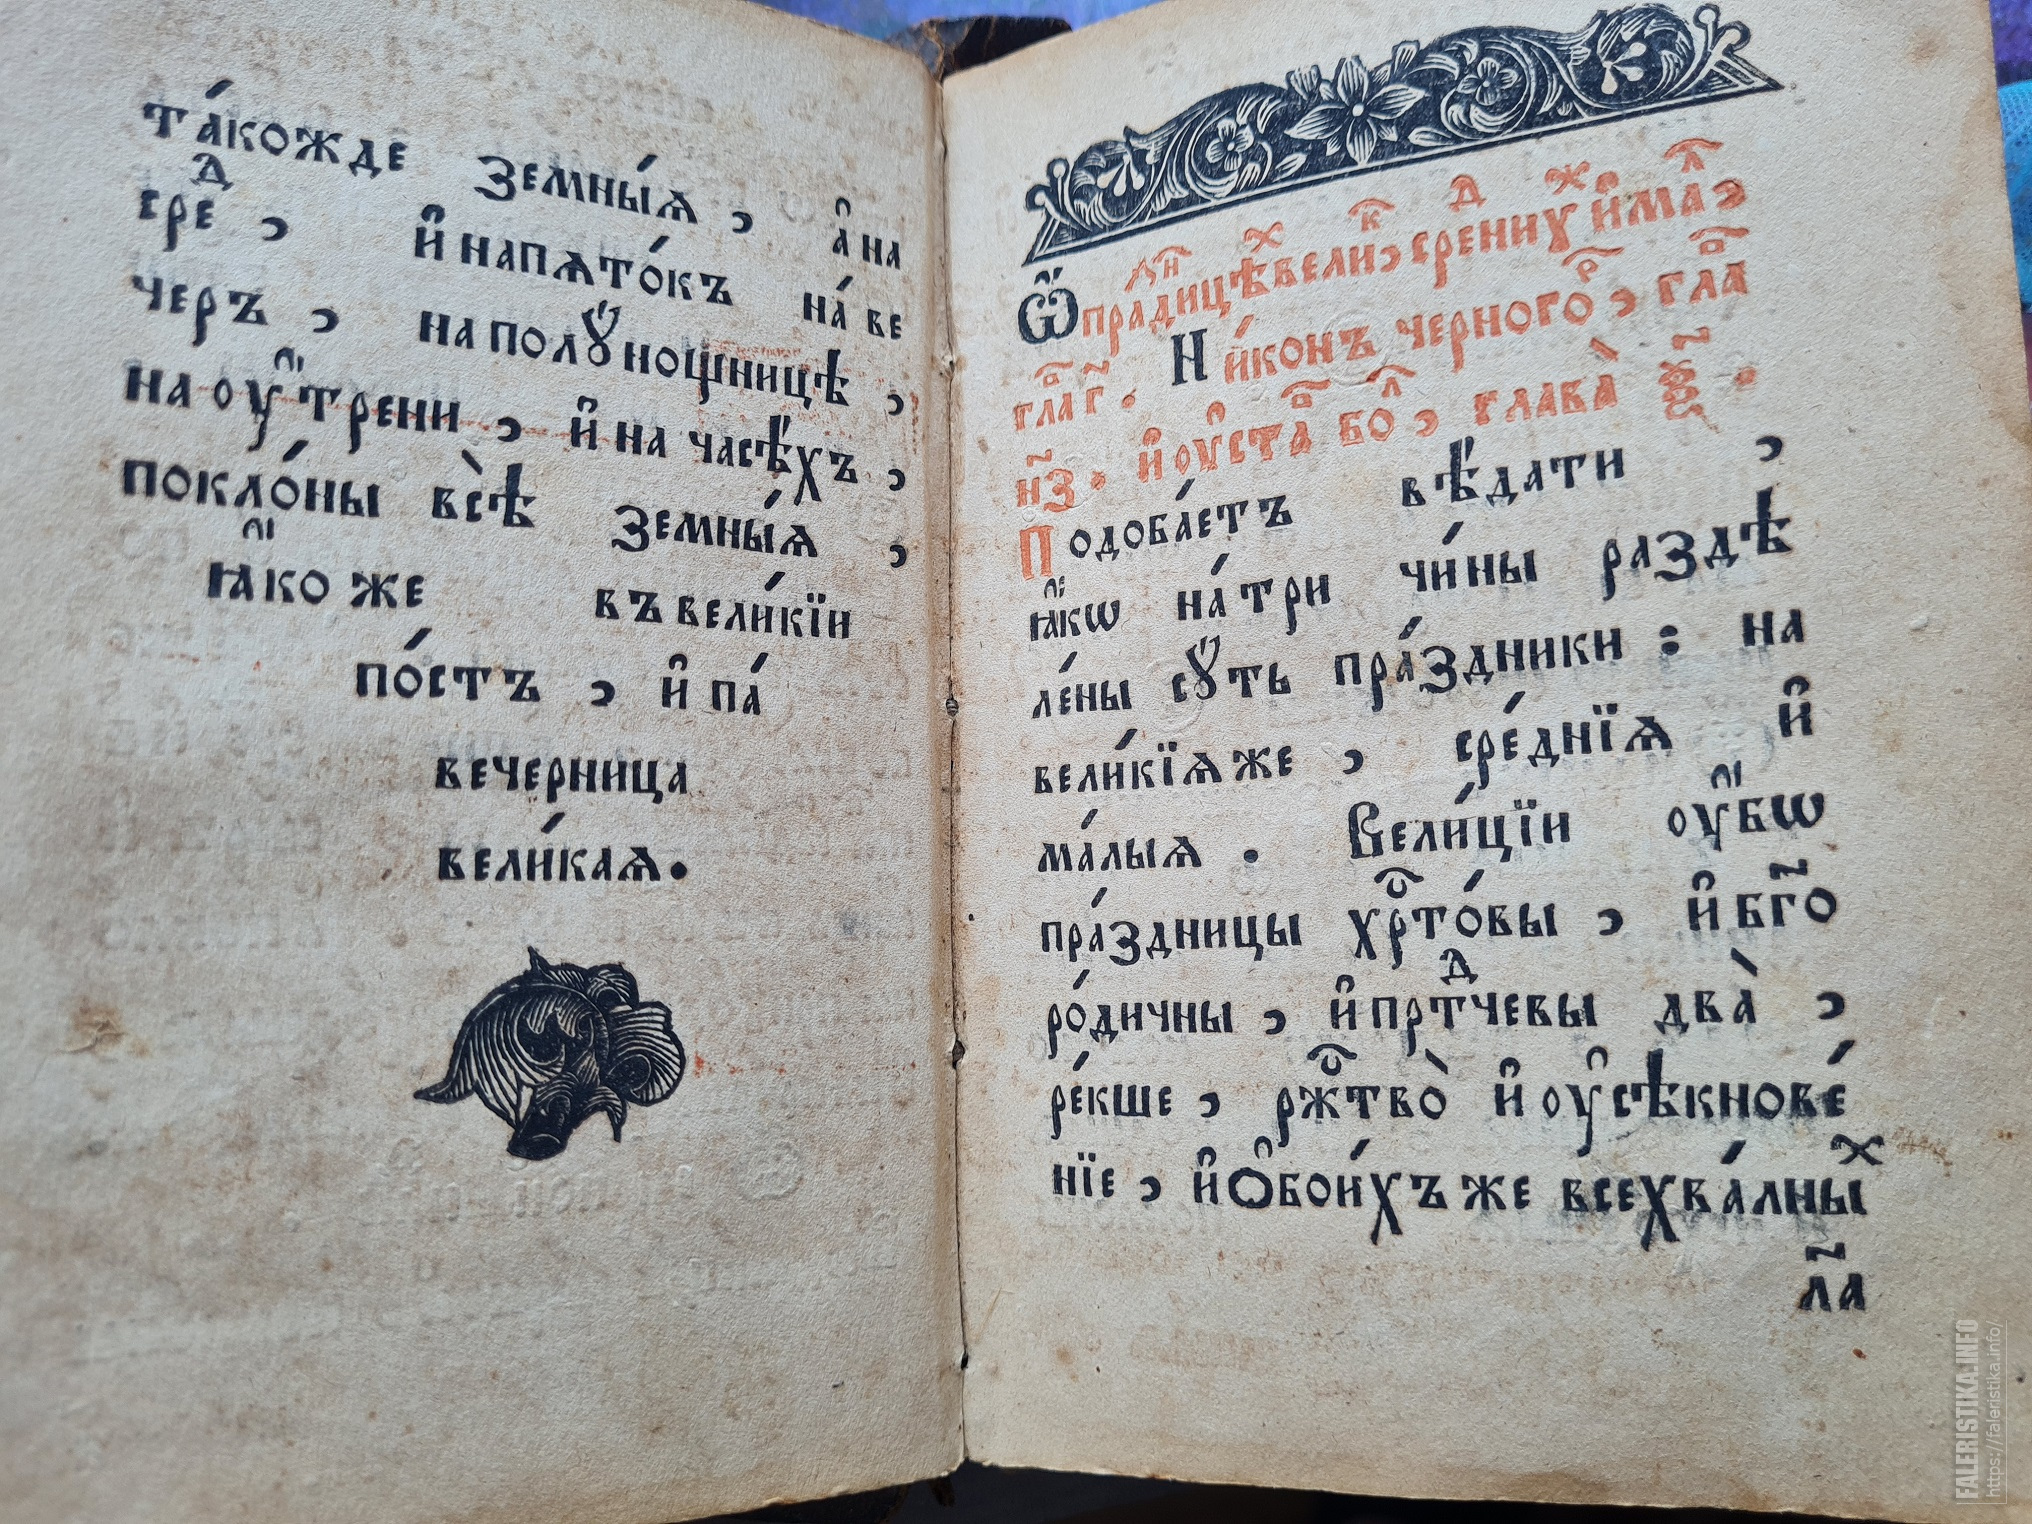 та́кожде земны́ѧ , а҆ на
сре́ⷣ , и҆ напѧто́къ на́ ве
черъ , на полꙋ́нощницѣ ,
на оу҆́трени , и҆ на часѣ́хъ ,
покло́ны всѣ̀ земны́ѧ ,
ꙗ҆́ко же въвели́кїи
по́стъ , и҆ па́
вечерница
вели́каѧ .
Ѿ праⷥ҇дницѣⷯ҇ вели́ⷦ҇ , среⷣнихꙋⷤ и҆ маⷧ҇ ,
гла̑ г҃ . Ни́конъ черногоⷬ҇ , гла̑
н҃з . и҆ оу҆ста̑ боⷧ҇ , глава̀
Подоба́етъ вѣ́дати ,
ꙗ҆́кѡ на́ три чи́ны раздѣ
ле́ны сꙋ́ть пра́здники : на
вели́кїѧже , сре́днїѧ и҆
ма́лыѧ . Вели́цїи оу҆́бѡ
пра́здницы хрⷭ҇то́вы , и҆ бг҃о
ро́дичны , и҆ прⷣтчевы два̀ ,
ре́кше , ржⷭ҇тво̀ и҆ оу҆сѣкнове́
нїе , и҆ ѻ҆бои́хъ же всехва́лныⷯ
л҃а
FALERISTIKA.INFO
https://faleristika.info/